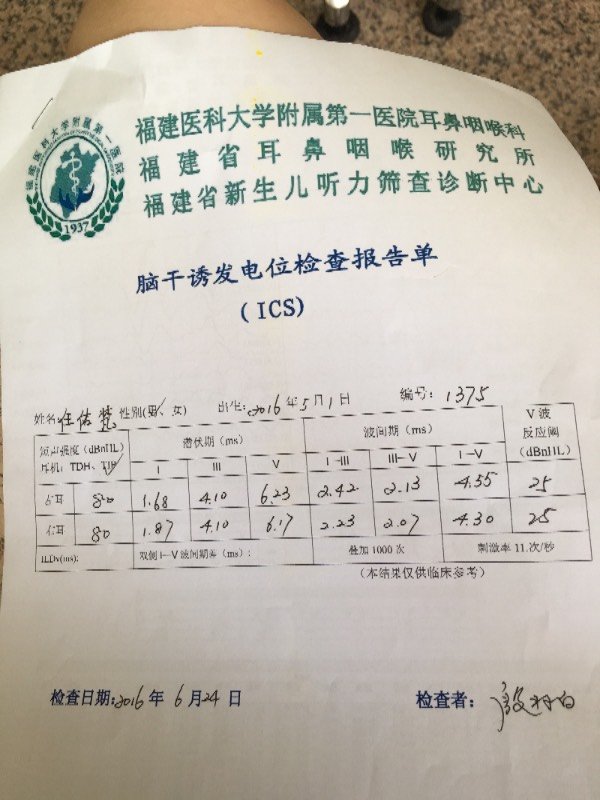 福建医科大学附属第一医院
1937
福建医科大学附属第一医院耳鼻咽喉科
福建省耳鼻咽喉研究所
福建省新生儿听力筛查诊断中心
脑干诱发电位检查报告单
(ICS)
姓名: 任佑 性别(男、女) 出生:2016年5月1日 编号: 1375
短声强度 (dBnHL) 潜伏期 (ms) 波间期 (ms) V 波
耳机: TDH、TIP I III V I-III III-V I-V 反应阈
(dBnHL)
右耳 80 1.68 4.10 6.23 2.42 2.13 4.55 25
左耳 80 1.87 4.10 6.17 2.23 2.07 4.30 25
ILDv(ms): 双侧 I-V 波间期差 (ms): 叠加 1000 次 刺激率 11.次/秒
(本结果仅供临床参考)
检查日期:2016 年 6 月 24 日 检查者: